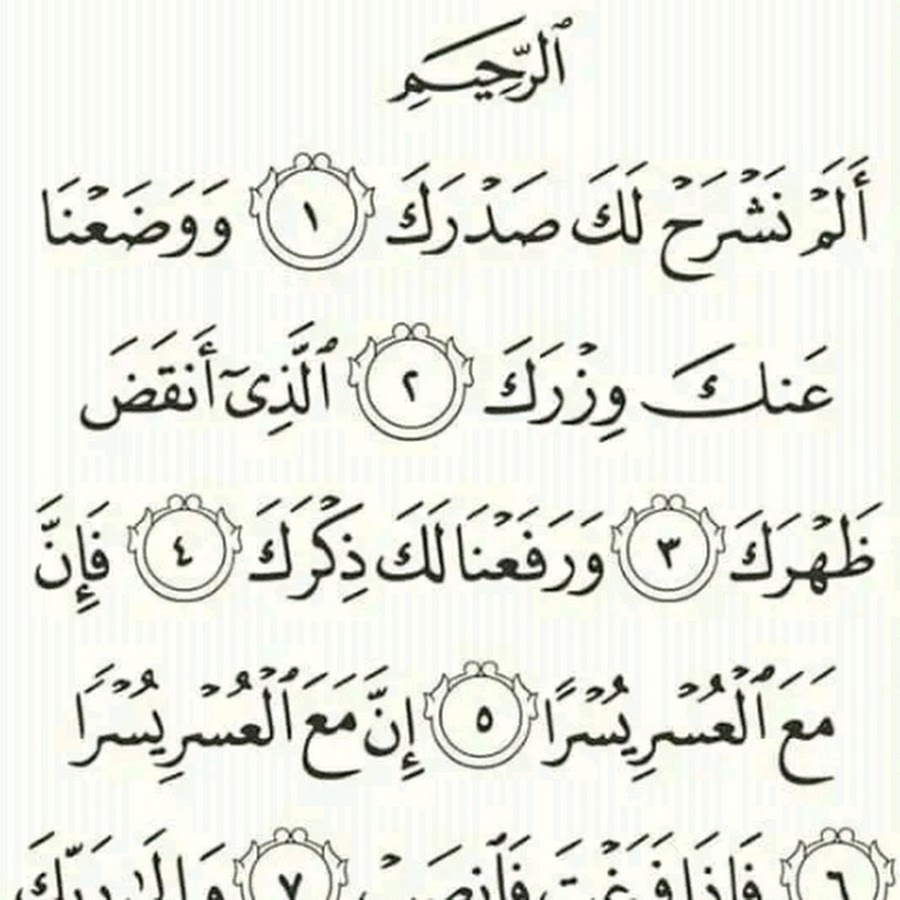 ٱلرَّحِيمِ
أَلَمْ نَشْرَحْ لَكَ صَدْرَكَ ١ وَوَضَعْنَا
عَنكَ وِزْرَكَ ٢ ٱلَّذِىٓ أَنقَضَ
ظَهْرَكَ ٣ وَرَفَعْنَا لَكَ ذِكْرَكَ ٤ فَإِنَّ
مَعَ ٱلْعُسْرِ يُسْرًا ٥ إِنَّ مَعَ ٱلْعُسْرِ يُسْرًا
٦ فَإِذَا فَرَغْتَ فَٱنصَبْ ٧ وَإِلَىٰ رَبِّكَ